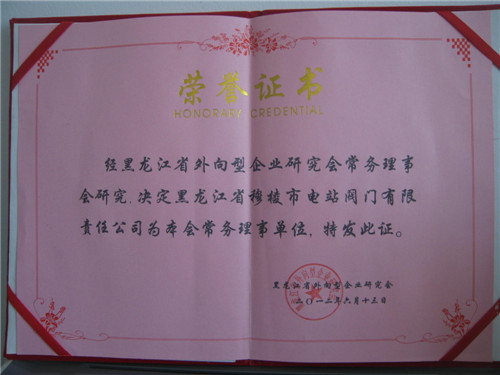 荣誉证书
HONORARY CREDENTIAL
经黑龙江省外向型企业研究会常务理事
会研究.决定黑龙江省穆棱市电站阀门有限
责任公司为本会常务理事单位，特发此证。
黑龙江省外向型企业研究会
二〇一二年六月十三日